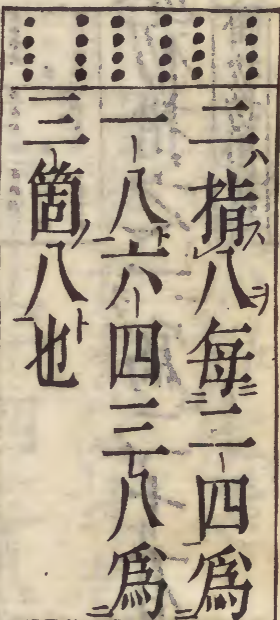 二指八每二四爲
一八六四三八爲
三箇八也